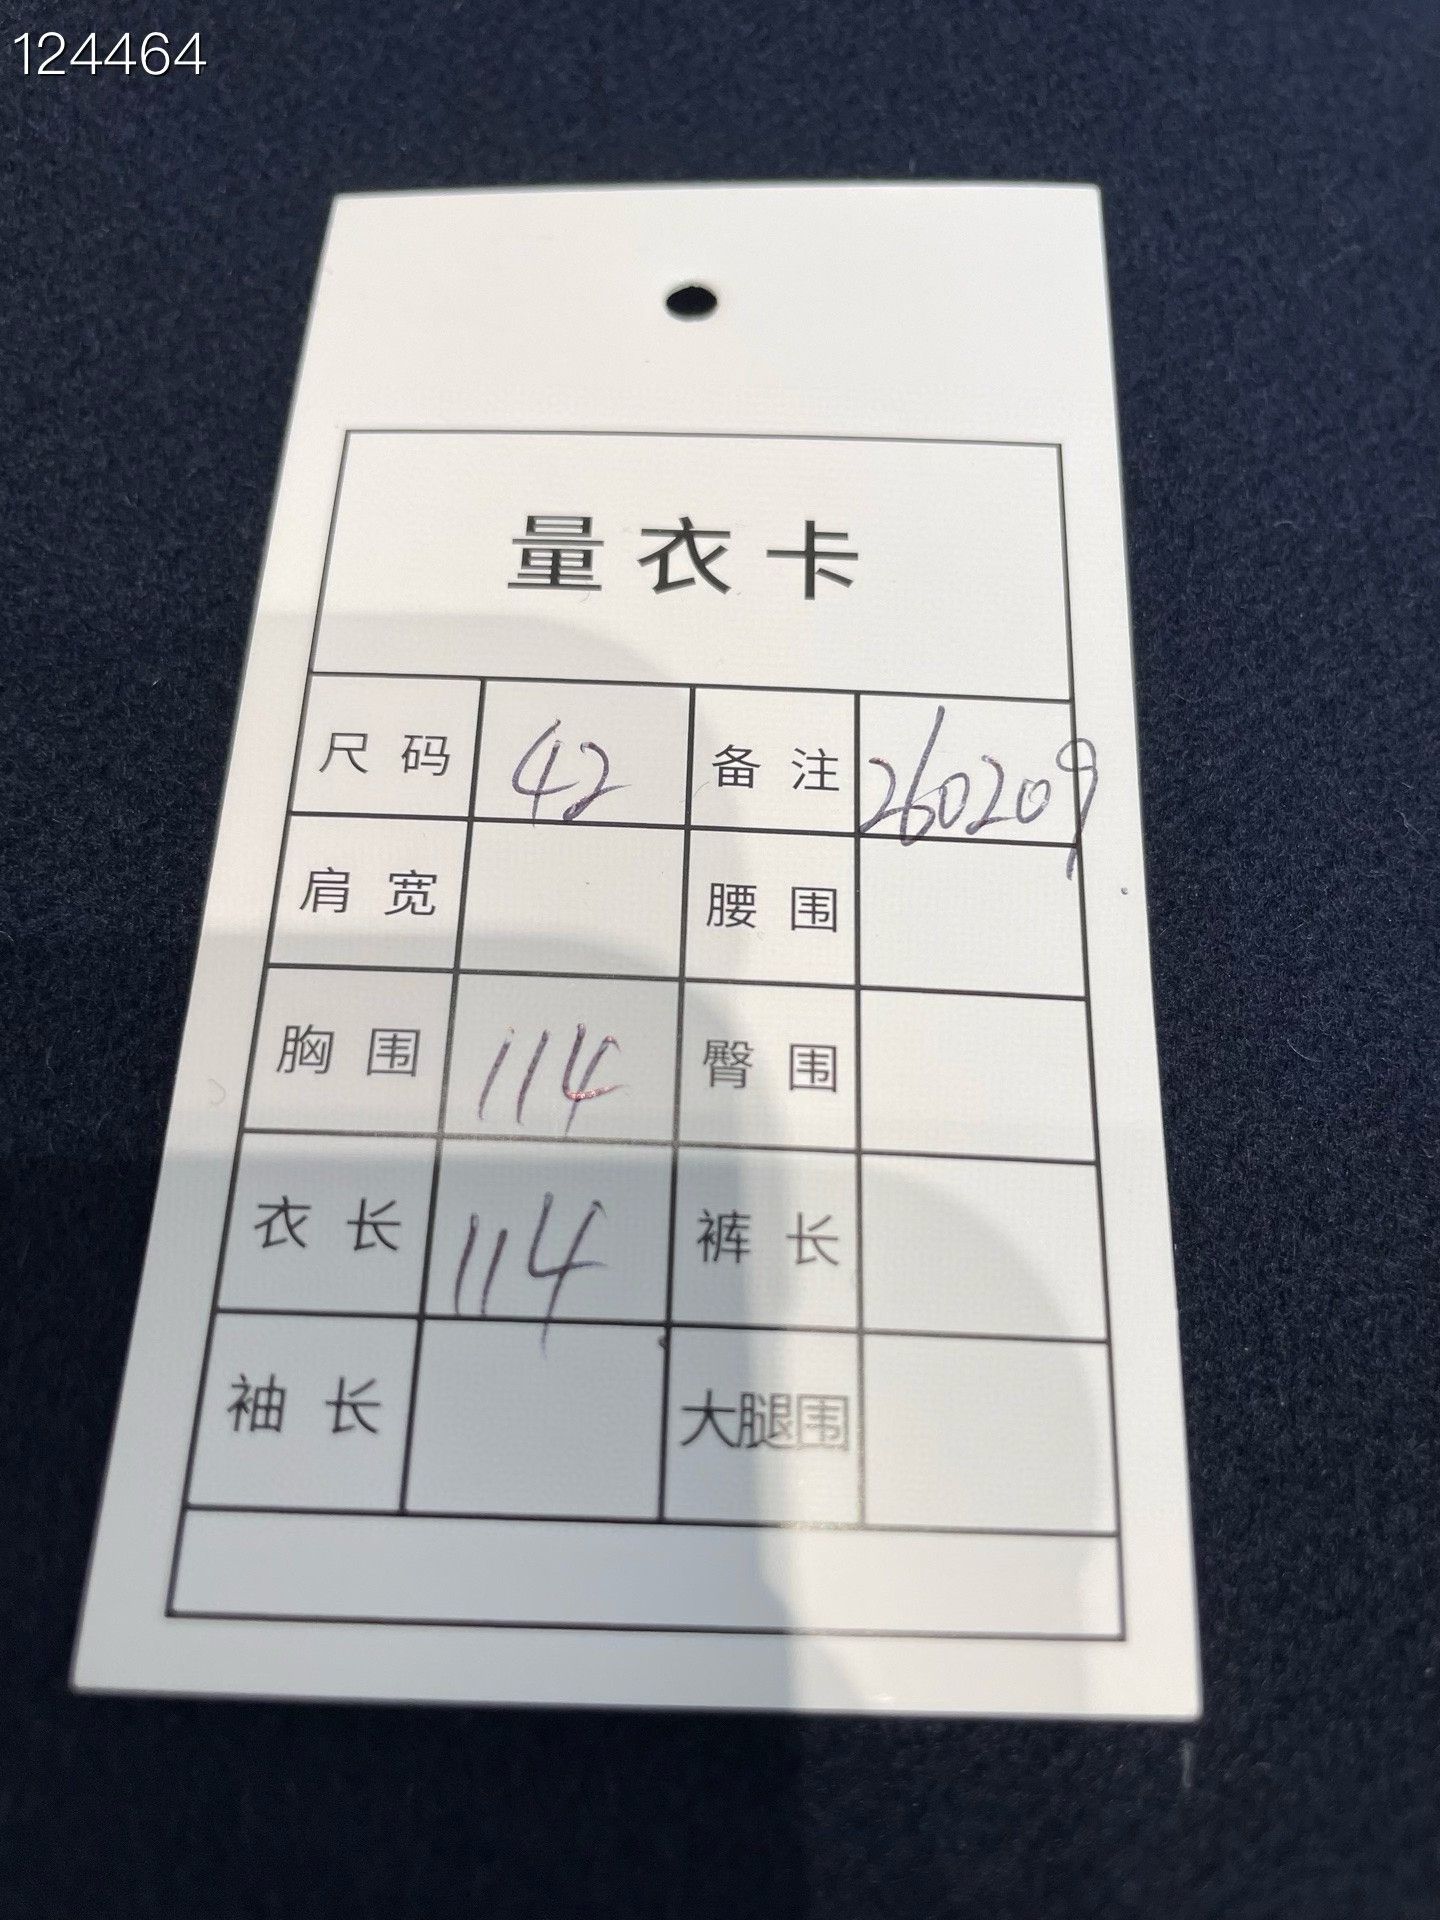 124464
量衣卡
尺码 42 备注 260209
肩宽 腰围
胸围 114 臀围
衣长 114 裤长
袖长 大腿围